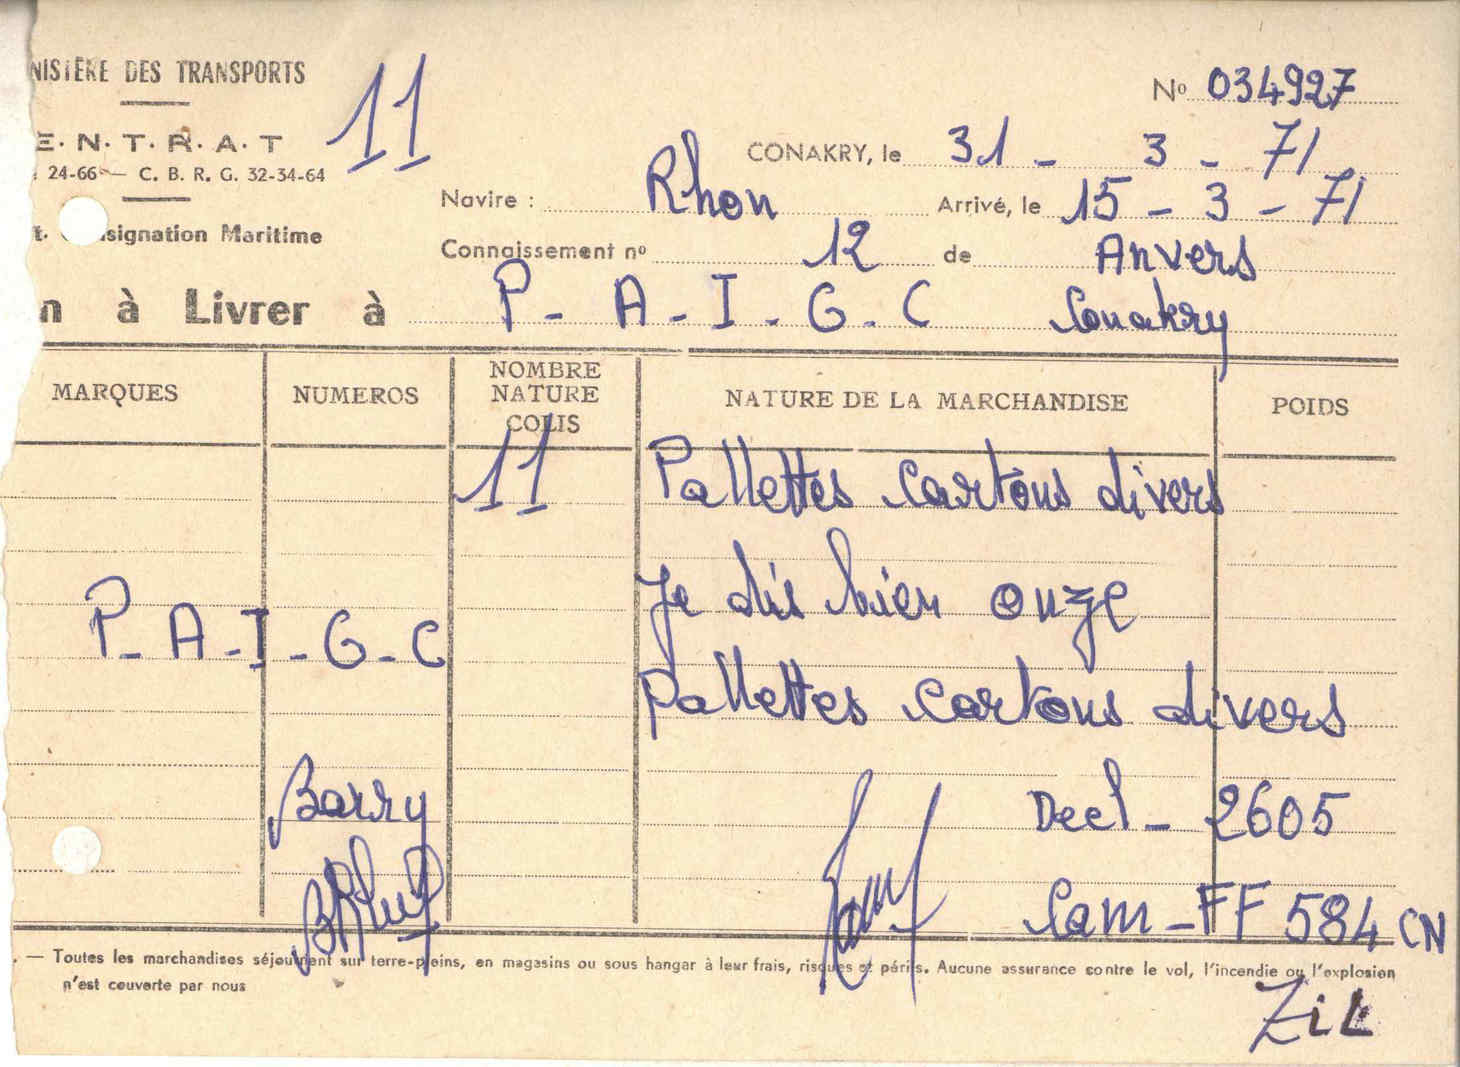 NISTÈRE DES TRANSPORTS
11
Nº 034927
E. N. T. R. A. T
24-66 — C. B. R. G. 32-34-64
CONAKRY, le 31 - 3 - 71
Navire : Rhon Arrivé, le 15 - 3 - 71
t. signation Maritime
Connaissement nº 12 de Anvers
n à Livrer à P - A - I - G - C Conakry
MARQUES NUMEROS NOMBRE NATURE COLIS NATURE DE LA MARCHANDISE POIDS
11 Pallettes cartons divers
Je dis bien onze
P - A - I - G - C
pallettes cartons divers
Barry
Decl - 2605
Cam - FF 584 CN
. — Toutes les marchandises séjournent sur terre-pleins, en magasins ou sous hangar à leur frais, risques et périls. Aucune assurance contre le vol, l'incendie ou l'explosion
n'est couverte par nous
Zil